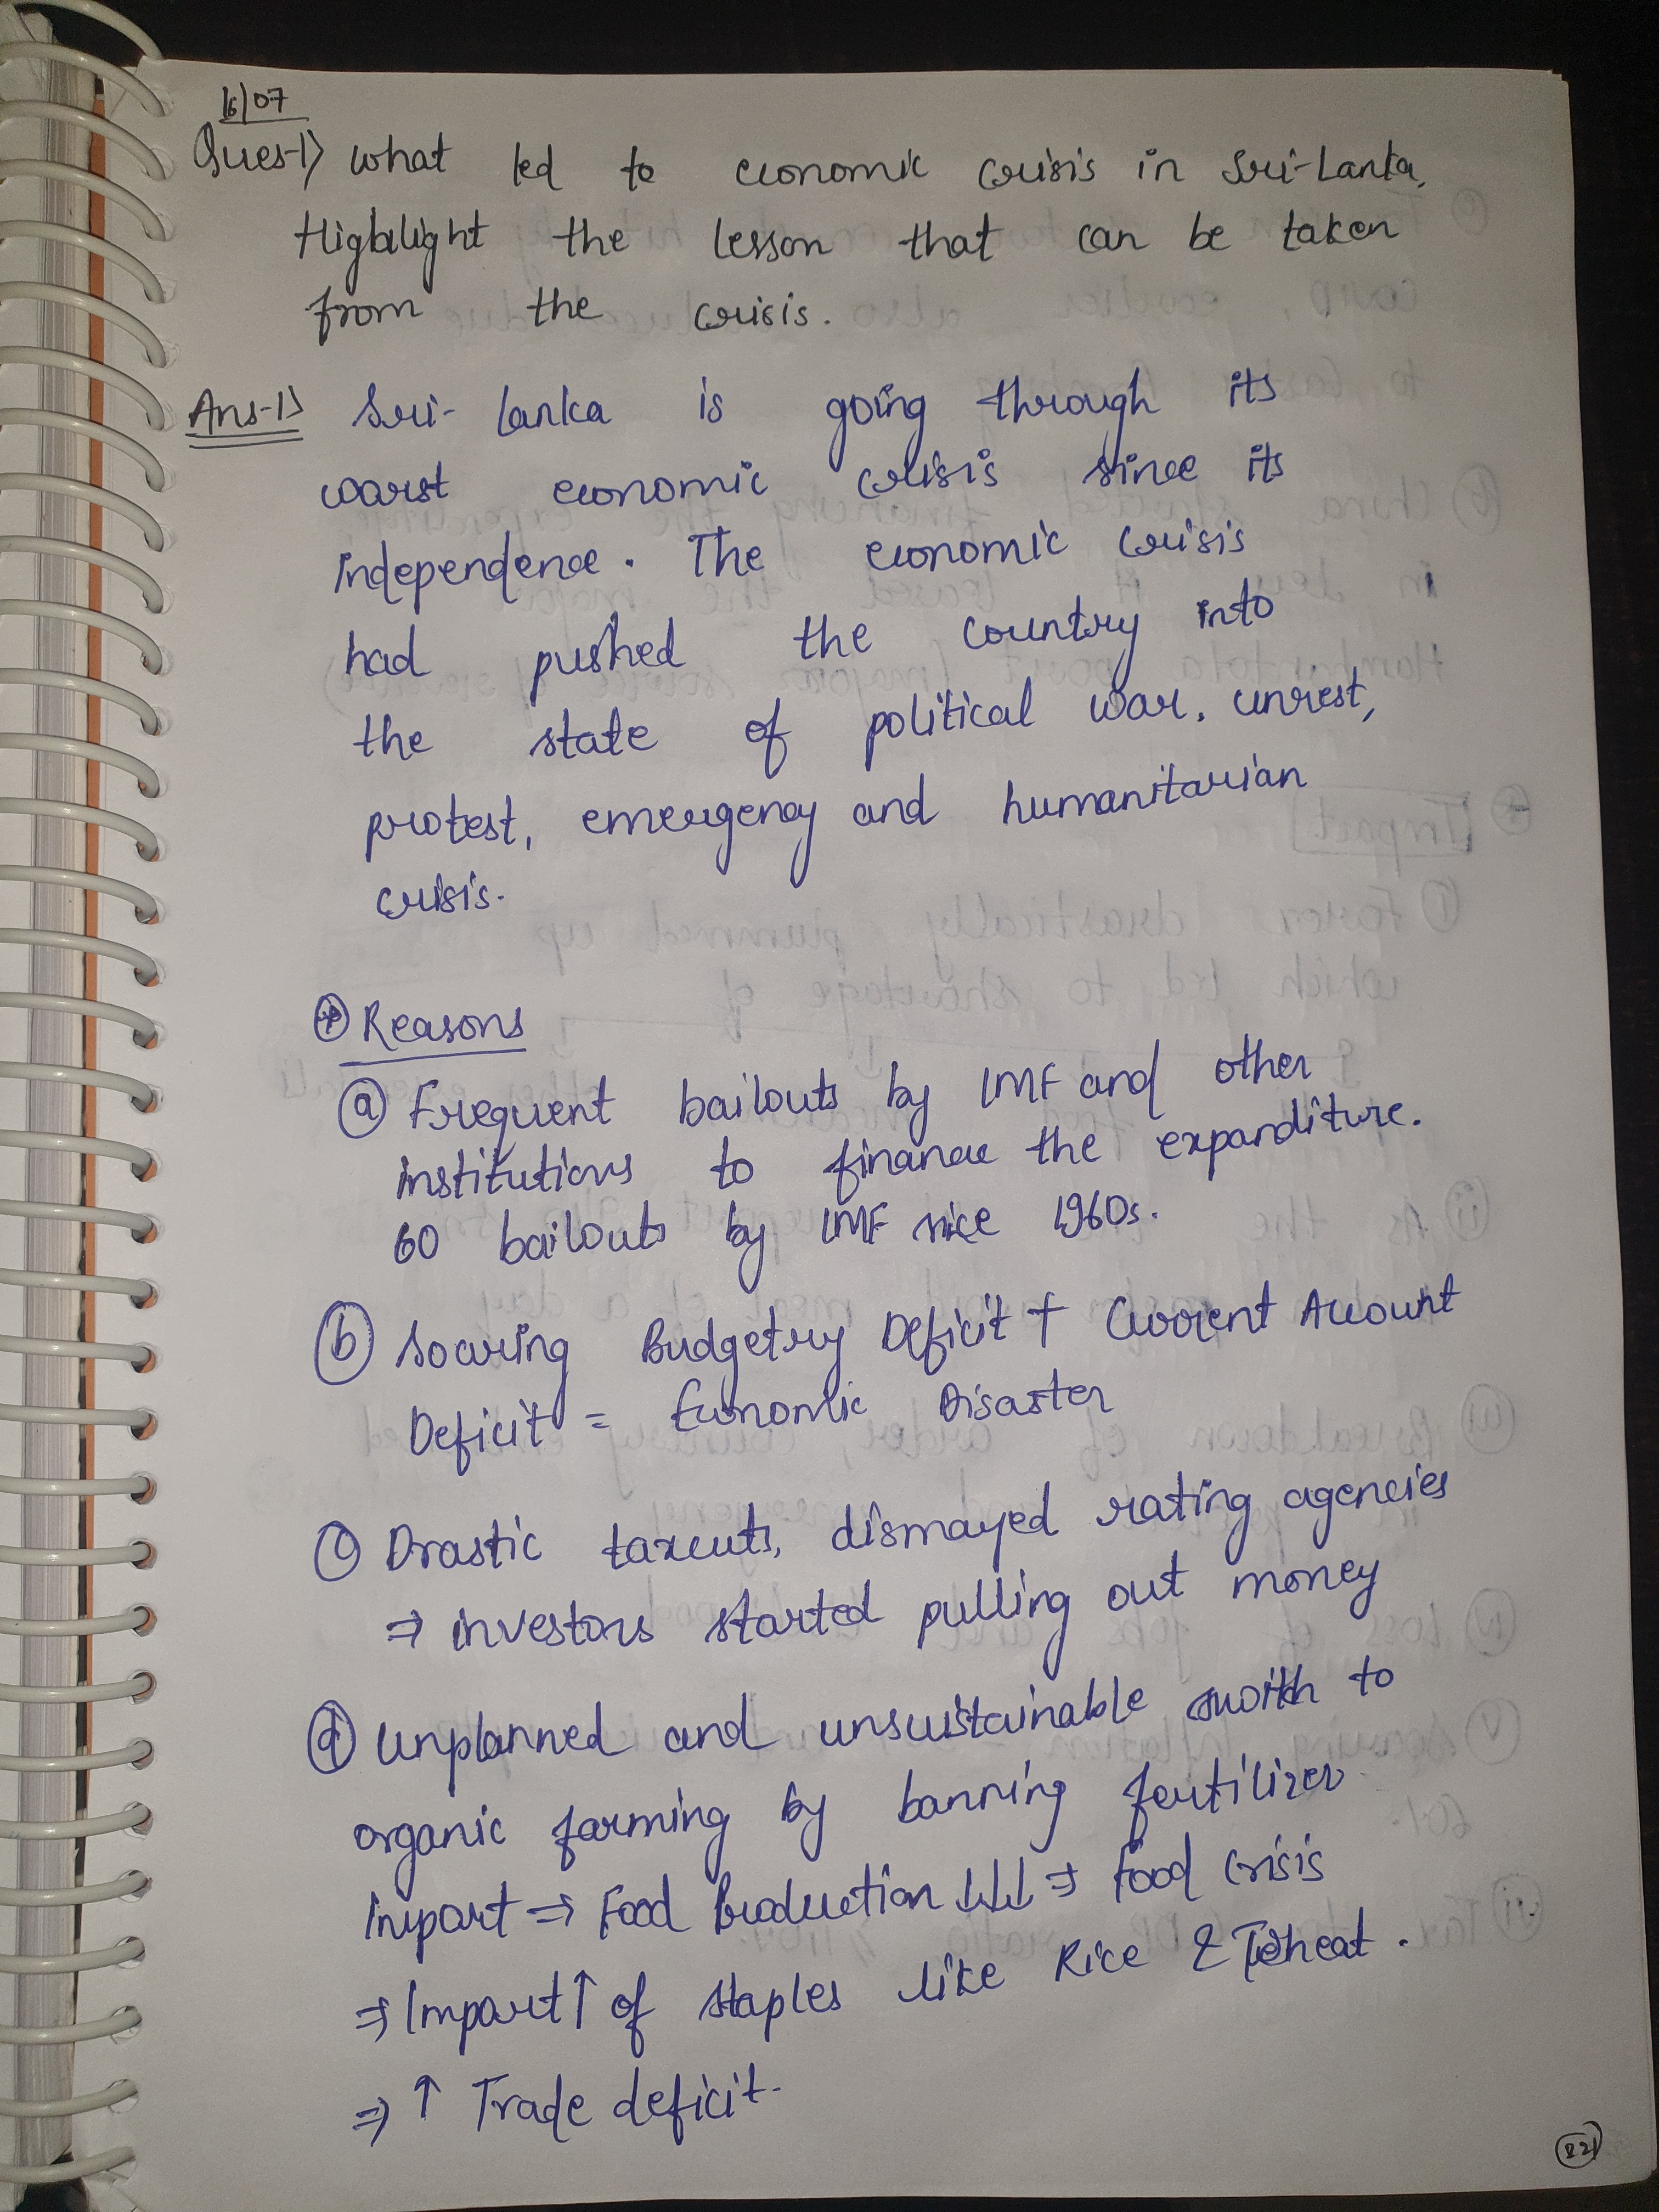 16/07
Ques-1) What led to economic crisis in Sri-Lanka,
Highlight the lesson that can be taken
from the crisis.
Ans-1) Sri-Lanka is going through its
worst economic crisis since its
independence. The economic crisis
had pushed the country into
the state of political war, unrest,
protest, emergency and humanitarian
crisis.
Reasons
(a) Frequent bailouts by IMF and other
institutions to finance the expanditure.
60 bailouts by IMF since 1960s.
(b) Soaring Budgetry Deficit + Current Account
Deficit = Economic Disaster
(c) Drastic taxcuts, dismayed rating agencies
⇒ investors started pulling out money
(d) Unplanned and unsustainable switch to
organic farming by banning fertilizer
import ⇒ Food Production ↓↓↓ ⇒ Food crisis
⇒ Import ↑ of staples like Rice & Wheat.
⇒ ↑ Trade deficit.